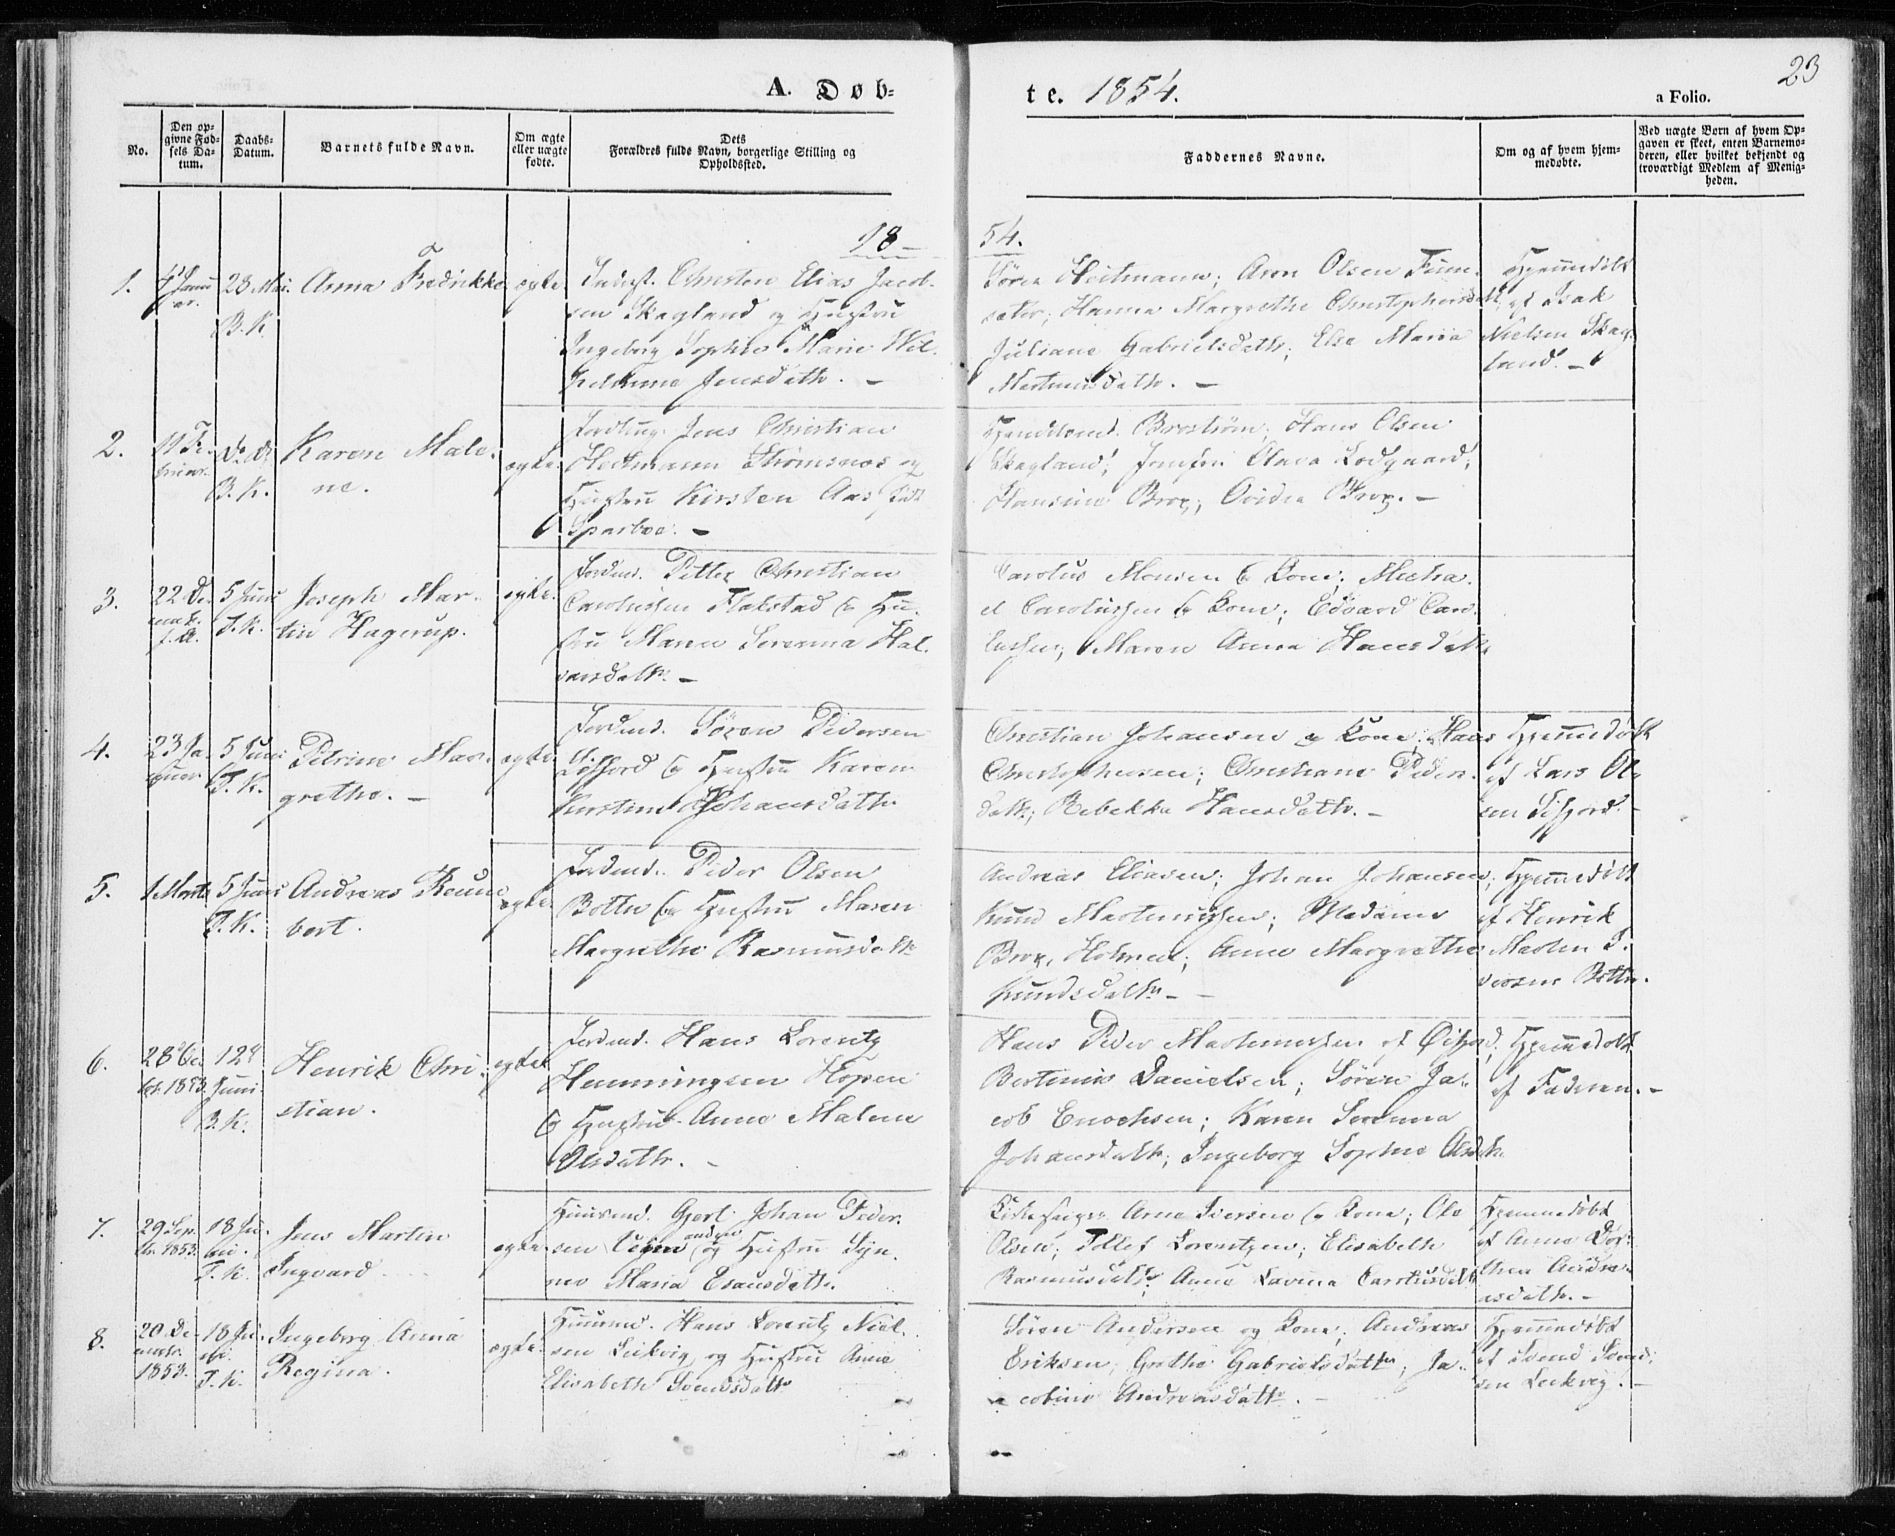 23
A. Døb-
te. 1854.
a Folio.
No.
Den op-
givne Fød-
sels Da-
tum.
Daabs-
Datum.
Barnets fulde Navn.
Om ægte
eller uægte
fødte.
Dets
Forældres fulde Navn, borgerlige Stilling og
Opholdssted.
Faddernes Navne.
Om og af hvem hjem-
medøbte.
Ved uægte Børn af hvem Op-
gaven er skeet, enten Barnemo-
deren, eller hvilket bekjendt og
troværdigt Medlem af Menig-
heden.
18-
54.
1.
4 Janu
ar.
23 Mai.
B. K.
Anna Fredrikke
ægte
Christen Elias Jacob-
sen Skagland og Hustru
Ingeborg Sophie Marie Wil-
helmine Jensdatt. -
Søren Heitmann; Aron Olsen Finn-
sæter; Hanna Margrethe Christophersdatt
Juliane Gabrielsdatt; Else Maria
Martinusdatt. -
Hjemmedøbt
af Isak
Nielsen Skag-
land. -
2.
11 Fe-
bruar.
do do
B. K.
Karen Male-
ne.
ægte
Jens Christian
Heitmann Strømsnæs og
Hustru Kirsten Aas født
Sparboe. -
Brostrøm; Hans Olsen
Skagland; Jomfru Olava Lodgaard;
Hansine Brox; Ovidia Brox. -
3.
22 De-
cemb.
f. A.
5 Juni
T. K.
Joseph Mar-
tin Hagerup.
ægte.
Jordmd. Petter Christian
Carolussen Flakstad og Hu-
stru Maren Serenna Hal-
vorsdatt. -
Carolus Monsen og Kone; Micha-
el Carolussen og Kone; Edvard Caro-
lussen; Maren Anna Hansdatt.
4.
23 Ja-
nuar
5 Juni
T. K.
Petrine Mar-
grethe. -
ægte
Jordmd. Søren Pedersen
og Hustru Karen
Kirstine Johansdatt.
Christian Johansen og Kone; Hans
Christophersen; Christiane Peders-
datt; Rebekka Hansdatt. -
Hjemmedøbt
af Lars Ol-
sen
5.
1 Marts
5 Juni
T. K.
Andreas Keun-
bort.
ægte.
Jordmd. Peder Olsen
Botten og Hustru Maren
Margrethe Rasmusdatt
Andreas Eliasen; Johan Johansen;
Knud Martinussen; Madame
Brox, Holmen; Anne Margrethe
Knudsdatt. -
Hjemmedøbt
af Henrik
Morten I-
versen Botten.
6.
28 Oc-
tob. 1853.
12te
Juni
B. K.
Henrik Chri-
stian.
ægte
Jordmd. Hans Lorentz
Henningsen Hopen
og Hustru Anne Malene
Olsdatt. -
Hans Peder Martinussen af Øifjord;
Bertinus Danielsen; Søren Ja-
cob Enochsen; Karen Serenna
Johansdatt; Ingeborg Sophie Olsdatt.
Hjemmedøbt
af Faderen. -
7.
29 Sep-
tbr. 1853.
18 Ju-
ni.
T. K.
Jens Martin
Ingvard.
ægte
Huusmd. Gjert Johan Peder-
sen og Hustru Syn-
nev Maria Esausdatt.
Kirkesanger Arne Iversen og Kone; Ole
Olsen; Tollef Lorentzen; Elisabeth
Rasmusdatt; Anne Lavina Carolusdatt
Hjemmedøbt
af Anne Dor-
thea Andre-
asdatt. -
8.
20 De-
cembr.
1853.
18 Ju-
ni.
T. K.
Ingeborg Anna
Regina.
ægte.
Huusmd. Hans Lorentz Niel-
sen Leikvig og Hustru Anne
Elisabeth Svendsdatt
Søren Andersen og Kone; Andreas
Eriksen; Grethe Gabrielsdatt; Ja-
cobine Andreasdatt. -
Hjemmedøbt
af Svend Svend-
sen Leikvig. -